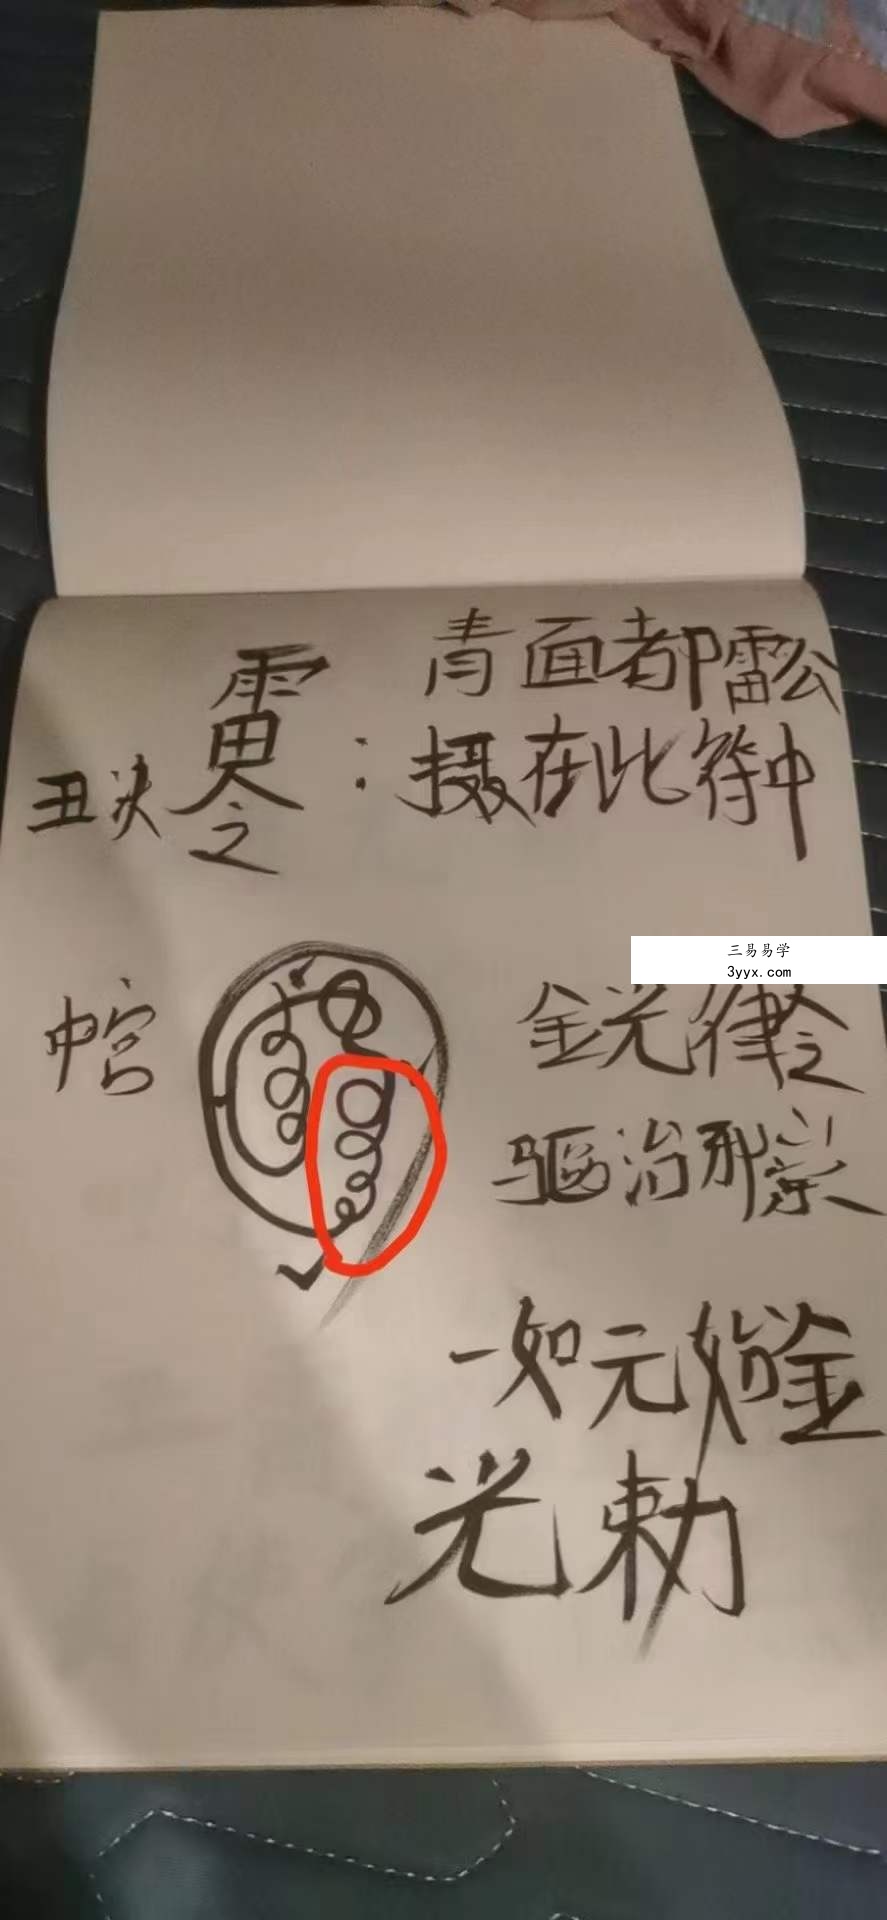 青面都雷公
丑决 雷令：摄在此符中
三易易学
3yyx.com
中宫
金光律令
驱治邪祟
一如元始金
光勅